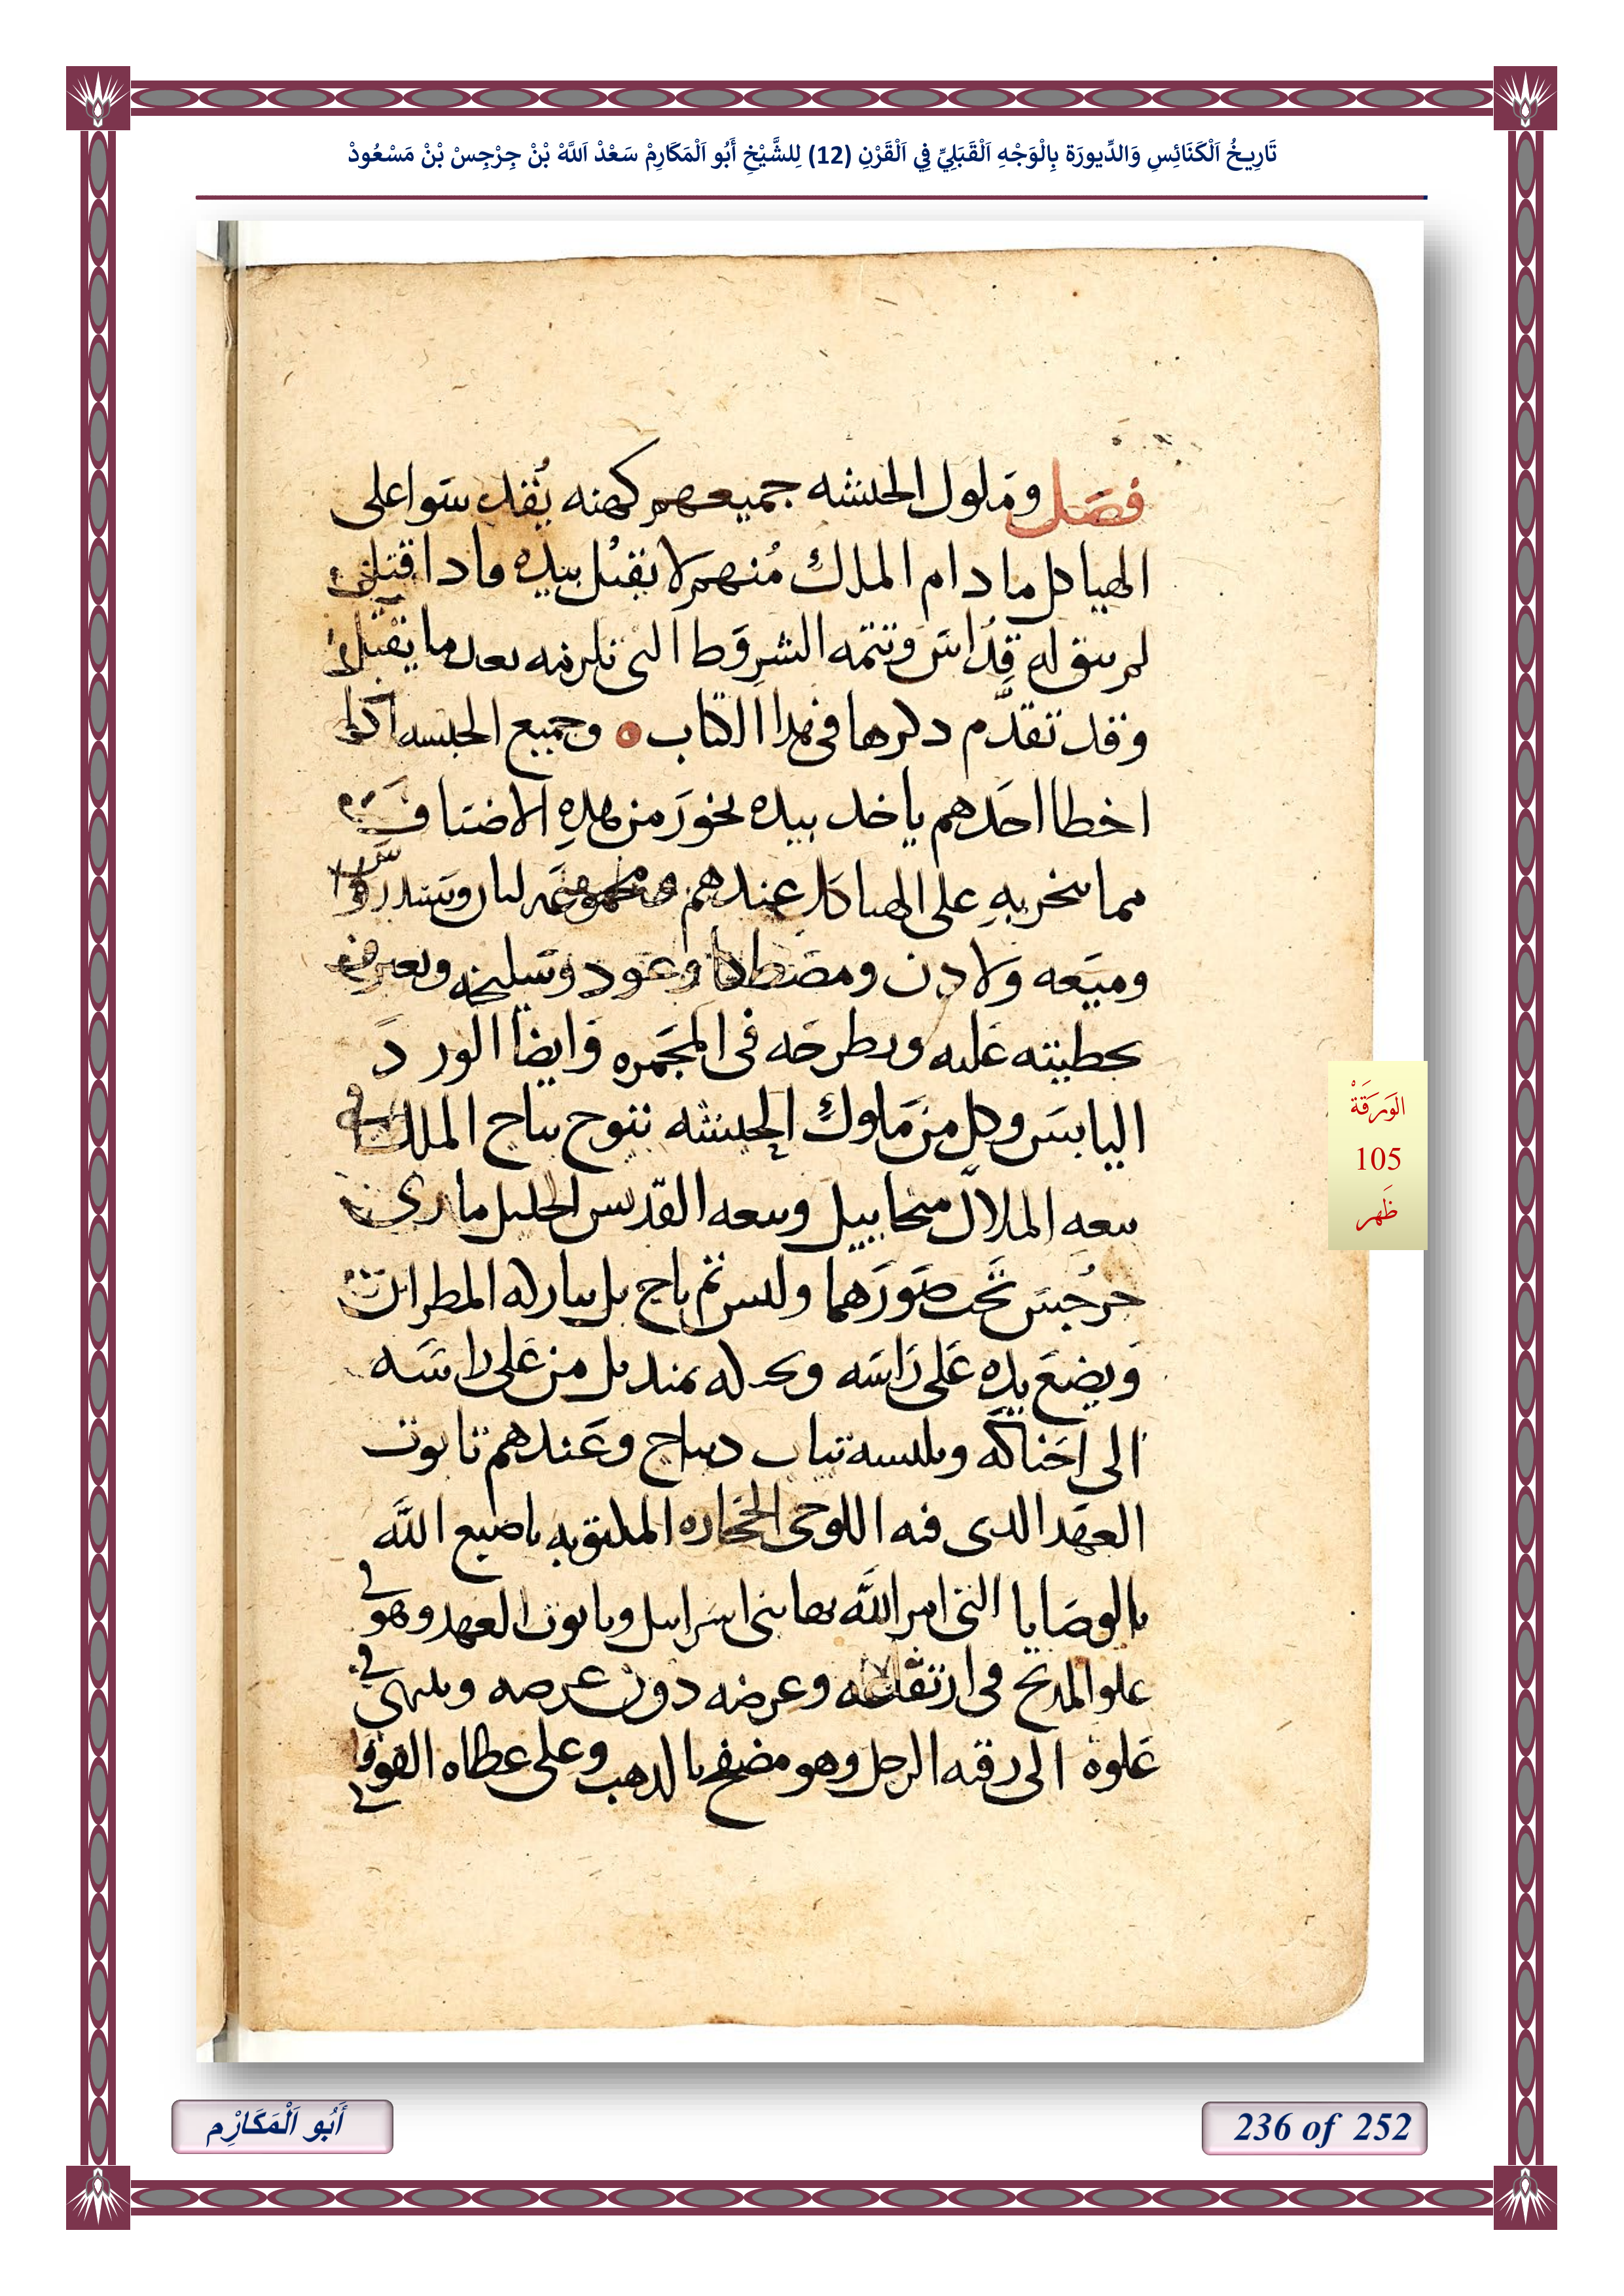 تَارِيخُ اَلْكَنَائِسِ وَالدِّيورَة بِالْوَجْهِ اَلْقَبَلِيِّ فِي اَلْقَرْنِ (12) لِلشَّيْخِ أَبُو اَلْمَكَارِمْ سَعْدْ اَللَّهْ بْنْ جِرْجِسْ بْنْ مَسْعُودْ
فصَل ومَلوك الحبشه جميعهم كهنه يُقدسَوا على
الهياكل ما دام الملك مُنهم لا يقتُل بيده فادا قتل
لم يبق له قدُاسَ وتتمه الشروَط التى تلزمه بعد ما يقتل
وقد تقدَّم دكرها فى هدا الكتاب ۞ وجميع الحبشه ادا
اخطا احَدهم ياخد بيده بخورَ من هدهِ الاصَناف
مما يبخر بهِ على الهياكل عندهم لبان وسَندروَس
وميَعه ولادن ومصَطكا وعَود وسَليخه ويعترف
بخطيته عَليه ويطرحَه فى المجَمره وَايضاً الورد
اليابسَ وكل من مَلوك الحبشه يتوج بتاج الملك فى
بيعه الملاك ميخاييل وبيعه القدّيس الجليل مارى
جرجسَ تَحت صَورَهما وليس ثم تاج بل يباركه المطران
وَيضعَ يده عَلى رَاسَه ويحـ له بمنديل من عَلى راسَـه
الى احَناكَه ويلبسه تياب ديباج وعَندهم تابوت
العهَد الدى فيه اللوحى الحجاره المكتوبه باصبع اللَّه
بالوصَايا التى امر اللَّه بها بنى اسَراييل وتابوت العهد وهو فى
علو المدبح فى ارتفاعه وعرضه دون عرضه وينتهى فى
عَلوه الى رقبه الرجل وهو مصَفح بالدهب وعلى غطاه الفوقا
الوَرَقَةْ
105
ظَهر
أَبُو اَلْمَكَارِْم
236 of 252